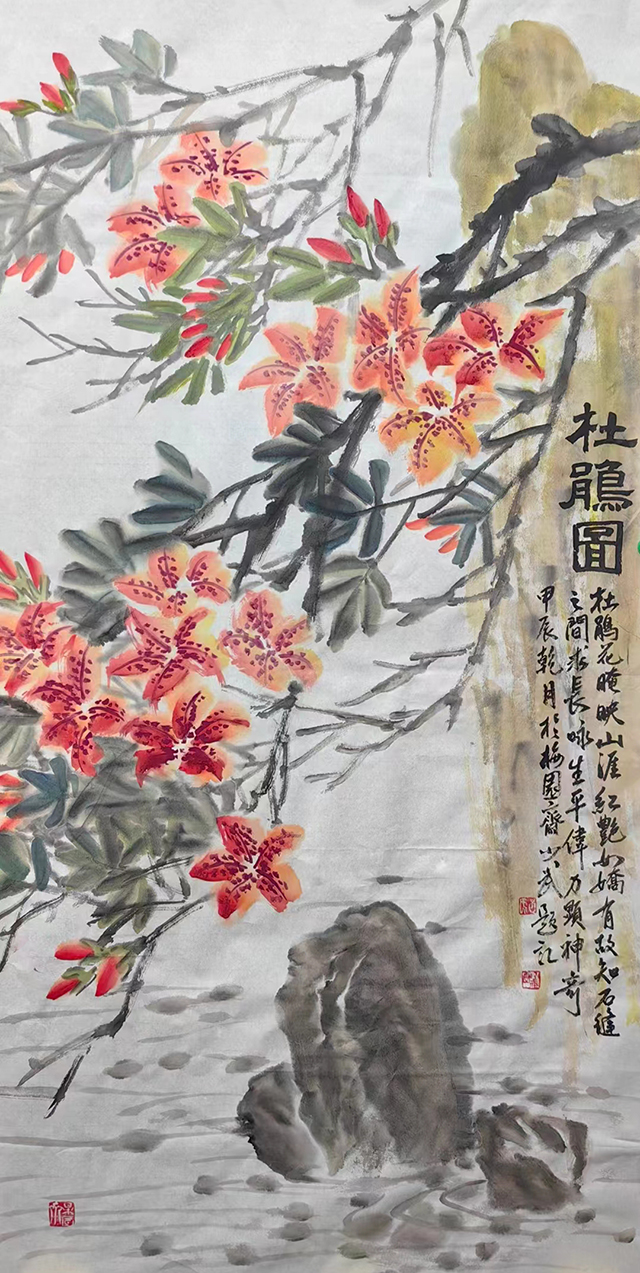 杜鵑圖
杜鵑花晻映山涯紅艷如嬌有故知石縫
之間求長咏生平偉力顯神奇
甲辰乾月於梅園齋小武題記